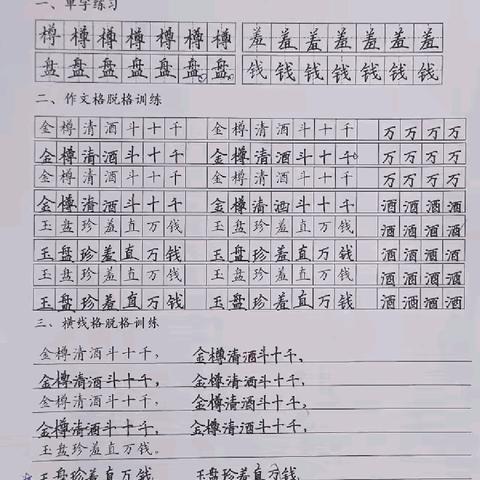 一、单字练习
樽樽樽樽樽樽樽 羞羞羞羞羞羞羞
盘盘盘盘盘盘盘 钱钱钱钱钱钱钱
二、作文格脱格训练
金樽清酒斗十千 金樽清酒斗十千 万万万万
金樽清酒斗十千 金樽清酒斗十千 万万万万
金樽清酒斗十千 金樽清酒斗十千 万万万万
金樽清酒斗十千 金樽清酒斗十千 酒酒酒酒
玉盘珍羞直万钱 玉盘珍羞直万钱 酒酒酒酒
玉盘珍羞直万钱 玉盘珍羞直万钱 酒酒酒酒
玉盘珍羞直万钱 玉盘珍羞直万钱 酒酒酒酒
玉盘珍羞直万钱 玉盘珍羞直万钱 酒酒酒酒
三、横线格脱格训练
金樽清酒斗十千， 金樽清酒斗十千，
金樽清酒斗十千， 金樽清酒斗十千，
金樽清酒斗十千， 金樽清酒斗十千，
金樽清酒斗十千， 金樽清酒斗十千，
玉盘珍羞直万钱。
玉盘珍羞直万钱 玉盘珍羞直万钱